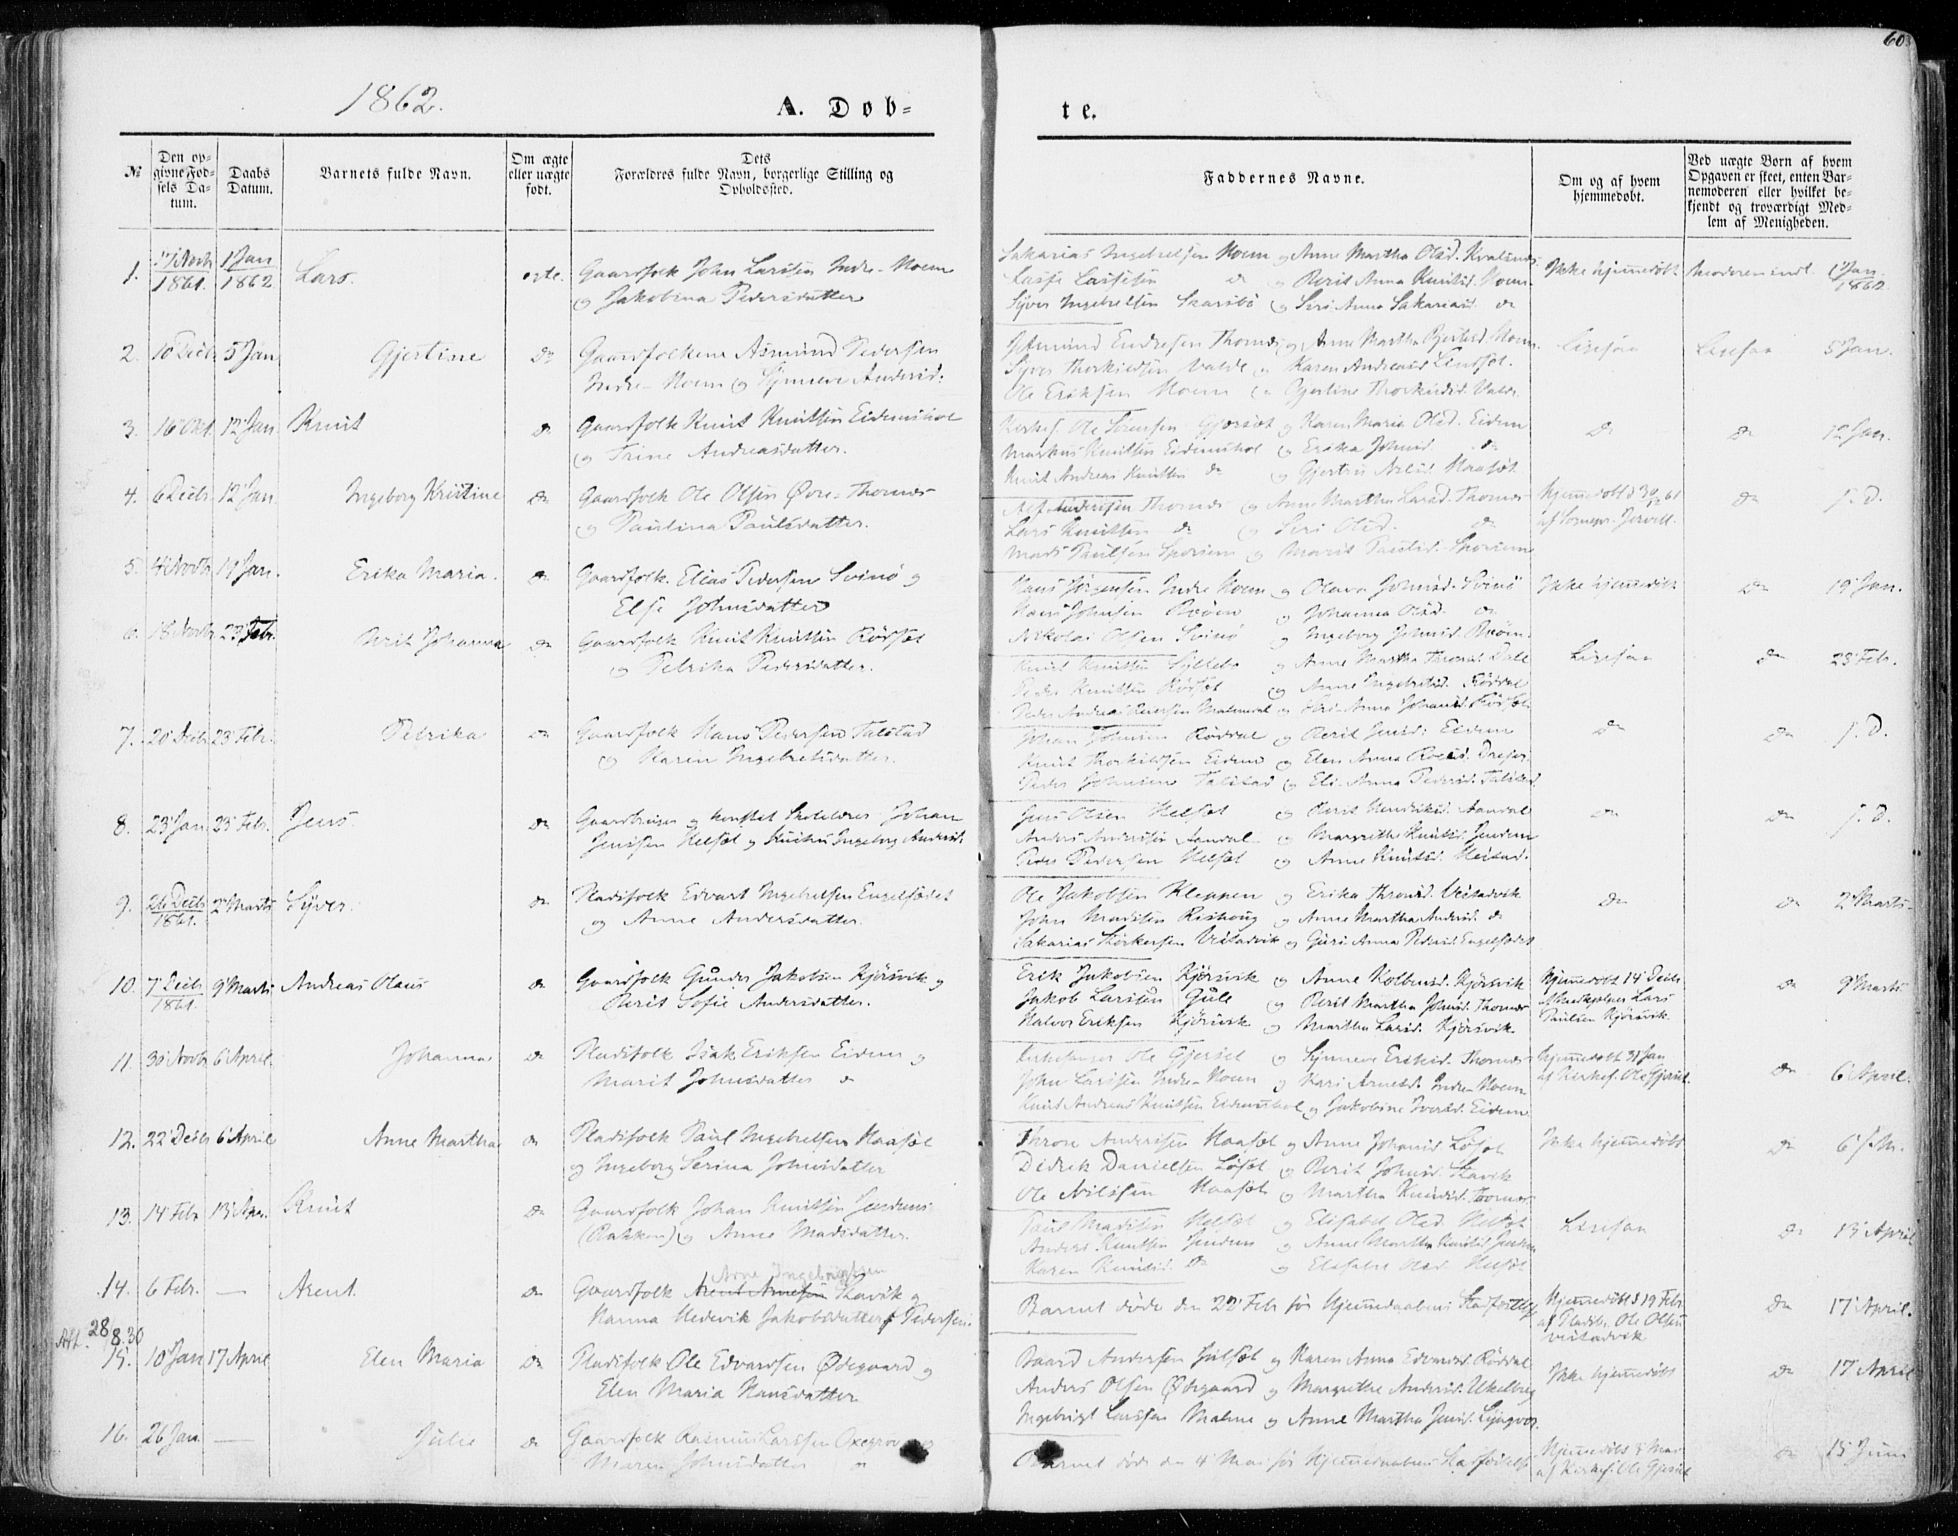 603
1862.
A. Døb=
te.
№
Den opgivne Fødsels Datum.
Daabs Datum.
Barnets fulde Navn.
Om ægte eller uægte født.
Dets Forældres fulde Navn, borgerlige Stilling og Opholdssted.
Faddernes Navne.
Om og af hvem hjemmedøbt.
Ved uægte Børn af hvem Opgaven er skeet, enten Barnemoderen eller hvilket bekjendt og troværdigt Medlem af Menigheden.
1. Novb 1861. 1 Jan 1862 Lars. egte. Gaardfolk John Larssen Indre-Moem
og Jakobina Pedersdatter
Sakarias Ingebretsen Moem og Anne Martha Olsd.
og Berit Anna Knutsd. Moem
Syver Ingebretsen Skarsbø og Siri Anna Sakariasd. do
Ikke hjemmedøbt 1 Jan. 1862
2. 10 Decb 5 Jan Gjertine do Gaardfolkene Asmund Pedersen
Indre-Moem og Synneve Andersd.
Endresen Thornes og Anne Martha
Syver Thorkildsen Valde og Karen Andreasd.
Ole Eriksen Moem og Gjertine Thorkildsd. Valde
Ligesaa Ligesaa 5 Jan.
3. 16 Okt. 12 Jan Knut do Gaardfolk Knut Knutsen Eidemshol
og Trine Andreasdatter.
Kirkes. Ole Gjersæt og Karen Maria Olsd. Eidem
Markus Knutsen Eidemshol og Erika Johnsd. do
Knut Andreas Knutsen do og
do do 12 Jan.
4. 6 Decb 12 Jan Ingeborg Kristine do Gaardfolk Ole Olsen Øvre-Thornes
og Paulina Paulsdatter.
Thornes og Anne Martha Larsd. Thornes
Lars Knutsen do og Siri Olsd. do
Mads Paulsen og Marit Paulsd.
Hjemmedøbt d 30/12 61
af Sognepr. Jervell.
do s. D.
5. 4 Novb 19 Jan. Erika Maria. do Gaardfolk Elias Pedersen Svinø og
Else Johnsdatter
Hans Jørgensen Indre Moem og Olava Johnsd. Svinø
Hans Johnsen og Johanna Olsd. do
Nikolai Olsen Svinø og Ingeborg Johnsd.
Ikke hjemmedøbt do 19 Jan.
6. 18 Novb 23 Febr. Berit Johanna do Gaardfolk Knut Knutsen Rørset
og Petrika Pedersdatter.
Knut Knutsen og Anne Martha Dale
Peder Knutsen Rørset og Anne Ingebretsd. Røddal
Ligesaa do 23 Feb.
7. 20 Decb 23 Febr. Petrika do Gaardfolk Hans Pedersen Talstad
og Karen Ingebretsdatter.
Johan Johnsen Røddal og Berit Eidem
Knut Thorkildsen Eidem og Elen Anna
Peder Johnsen Talstad og Eli Anna Pedersd. Talstad
do do s. D.
8. 23 Jan 23 Febr. Jens do Gaardbruger og konst. Skolelærer Johan
Jenssen Helset og Ingeborg Andersd.
Jens Olsen Helset og Berit Hendriksd. Aandal
Anders Andersen Aandal og Margrethe Knutsd. Jendem
Peder Pedersen Helset og Anne Knutsd.
do do s. D.
9. 26 Decb 1861. 2 Marts Syver. do Pladsfolk Edvart Ingebretsen Engelsødet
og Anne Andersdatter.
Ole Jakobsen Kleppen og Erika Thronsd. Vestadvik
John Madssen Rishoug og Anne Martha Andersd. do
Sakarias Størkersen Vestadvik og Guri Anna Pedersd. Engelsødet
do do 2 Marts.
10. 7 Decb 1861. 9 Marts Andreas Olaus do Gaardfolk Gunder Jakobsen Kjørsvik og
Berit Sofie Andersdatter.
Erik Jakobsen Kjørsvik og Anne Kolbensd. Kjørsvik
Jakob Larssen Gule og Berit Martha Johnsd. Thornes
Halvor Eriksen Kjørsvik og Martha Larsd. Kjørsvik
Hjemmedøbt 14 Decb
af Medhjelper Lars
Paulsen Kjørsvik.
do 9 Marts
11. 30 Novb 6 April Johannes do Pladsfolk Isak Eriksen Eidem og
Marit Johnsdatter do
Kirkesanger Ole Gjerset og Synneve Eriksd. Thornes
John Larssen Indre-Moem og Kari Arnesd. Indre-Moem
Knut Andreas Knutsen Eidemshol og Jakobine Iversd. Eidem
Hjemmedøbt 31 Jan
af Kirkes. Ole Gjerset.
do 6 April.
12. 22 Decb 6 April Anne Martha do Pladsfolk Paul Ingebretsen Haaset
og Ingeborg Serina Johnsdatter
Thron Andersen Haaset og Anne Johansd. Løset
Didrik Danielsen Løset og Berit Johnsd. Stavik
Ole Nilssen Haaset og Martha Knudsd. Tornes
Ikke hjemmedøbt do 6 s. M.
13. 14 Febr 13 Apr. Knut do Gaardfolk Johan Knutsen Jendem
(Bakken) og Anne Madsdatter.
Paul Madssen Helset og Elisabet Olsd. Helset
Anders Knutsen Jendem og Anne Martha Knutsd. Jendem
Karen Knutsd. do og Elisabet Olsd. Helset
Ligesaa do 13 April
Arne Ingebrigtsen
14. 6 Febr. — Arent do Gaardfolk Arent Arnesen Stavik og
Hanna Hedevik Jakobsdatter Pedersen.
Barnet døde den 22 Feb før Hjemmedaabens Stadfæstelse
Hjemmedøbt d 19 Feb.
af Pladsbr. Ole Olsen
Vestadvik
do 17 April.
Att. 28/8.30
15. 10 Jan 17 April Elen Maria do Pladsfolk Ole Edvardsen Ødegaard og
Elen Maria Hansdatter
Baard Andersen Julset og Karen Anna Edvardsd. Røddal
Anders Olsen Ødegaard og Margrethe Andersd.
Ingebrigt Larssen Malme og Anne Martha Jensd. Lyngvor.
Ikke hjemmedøbt do 17 April
16. 26 Jan. — Julie do Gaardfolk Rasmus Larssen
Maren Johnsdatter do
Barnet døde den 4 Mai før Hjemmedaabens Stadfæstelse
Hjemmedøbt
af Kirkes. Ole Gjerset
do 15 Juni